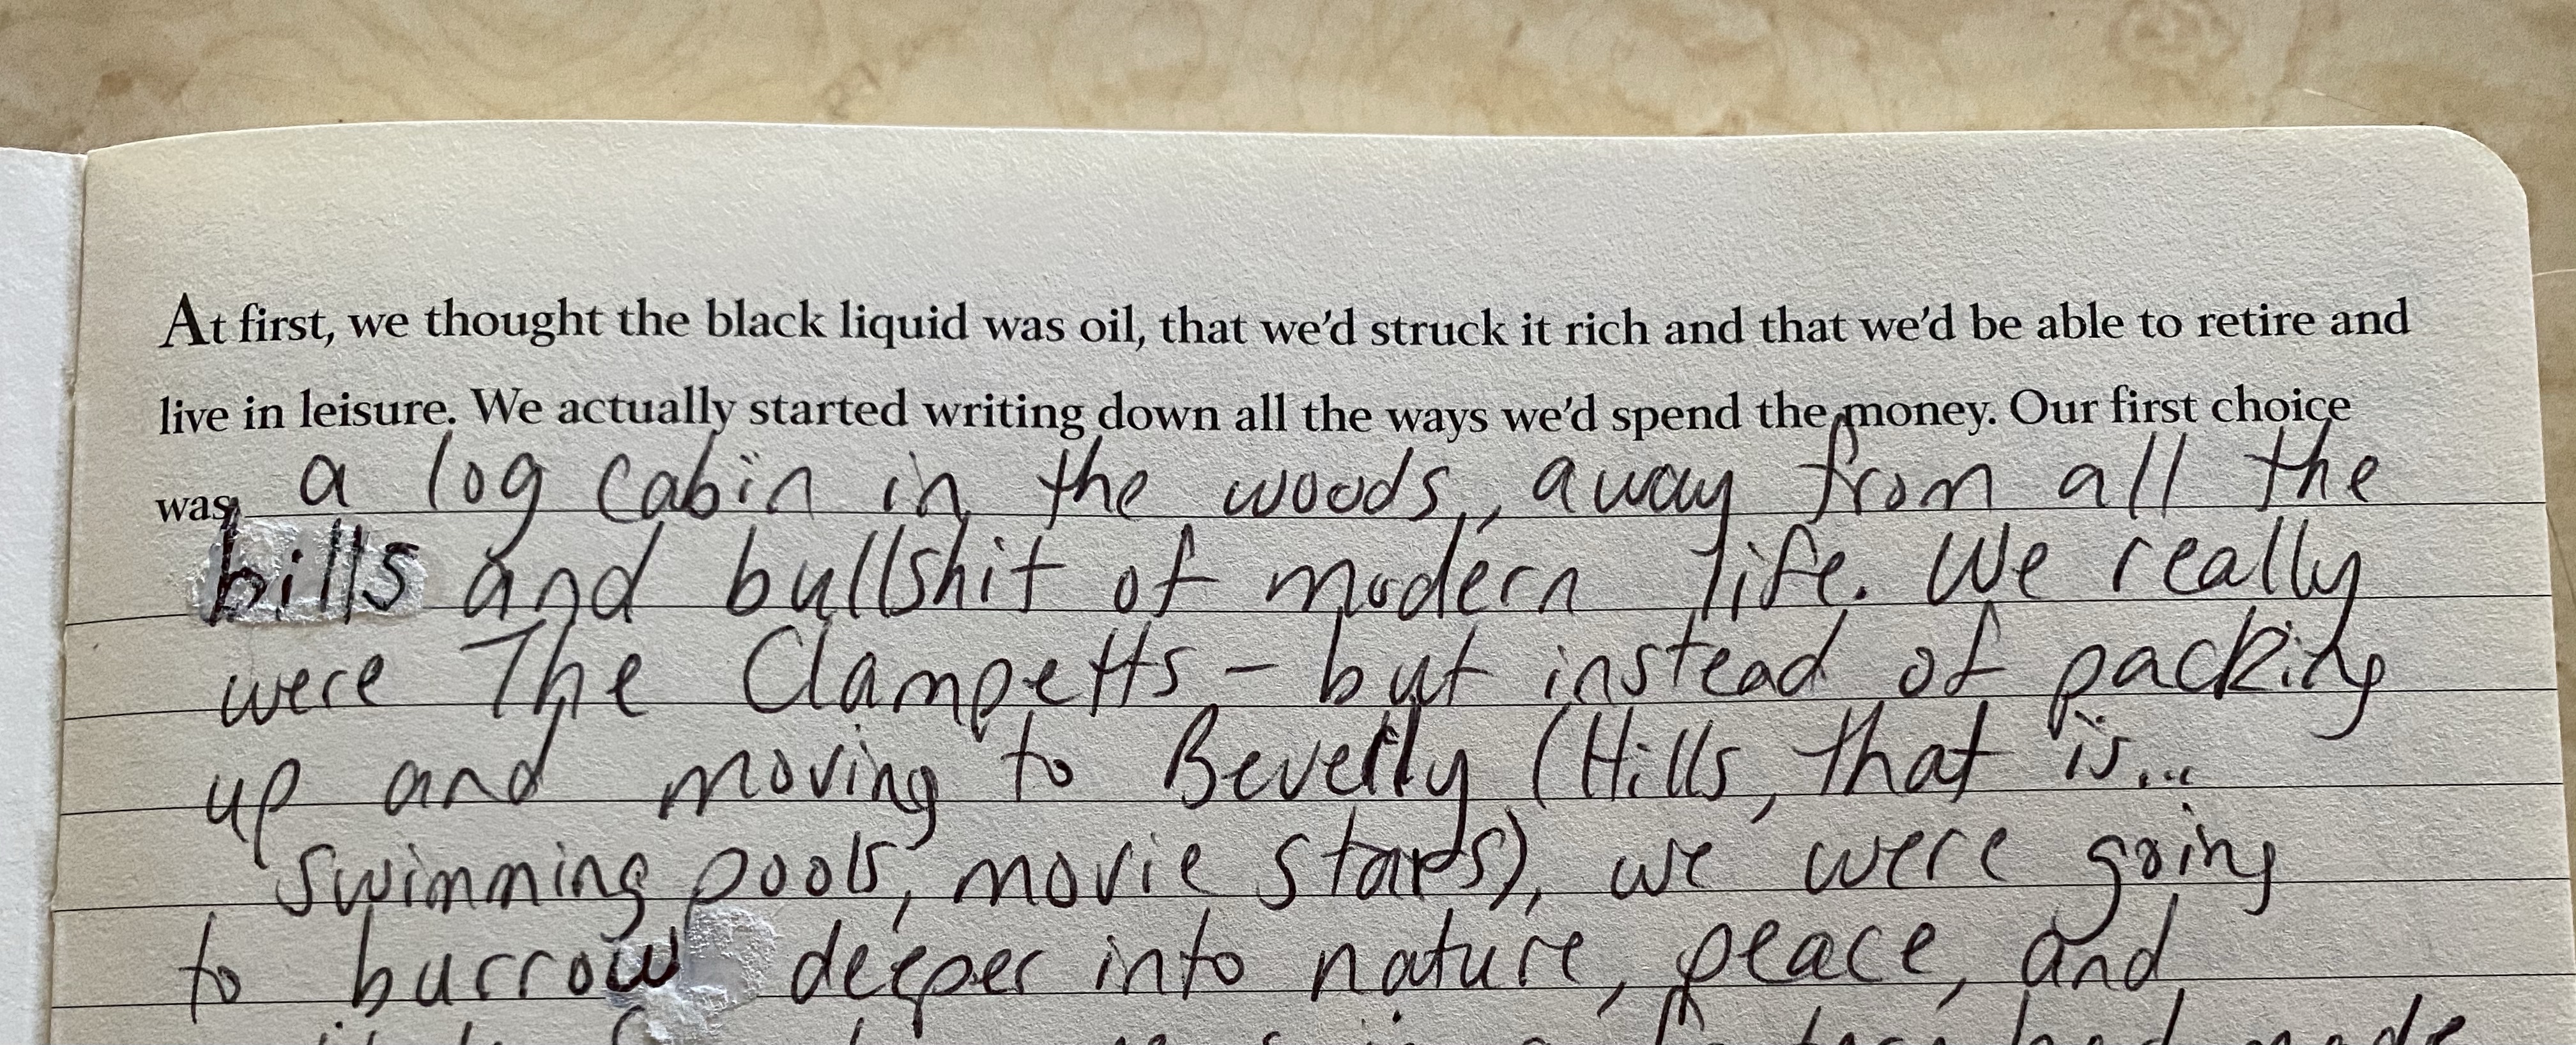 At first, we thought the black liquid was oil, that we'd struck it rich and that we'd be able to retire and
live in leisure. We actually started writing down all the ways we'd spend the money. Our first choice
was a log cabin in the woods, away from all the
bills and bullshit of modern life. We really
were The Clampetts – but instead of packing
up and moving to Beverly (Hills, that is...
swimming pools, movie stars), we were going
to burrow deeper into nature, peace, and
had made